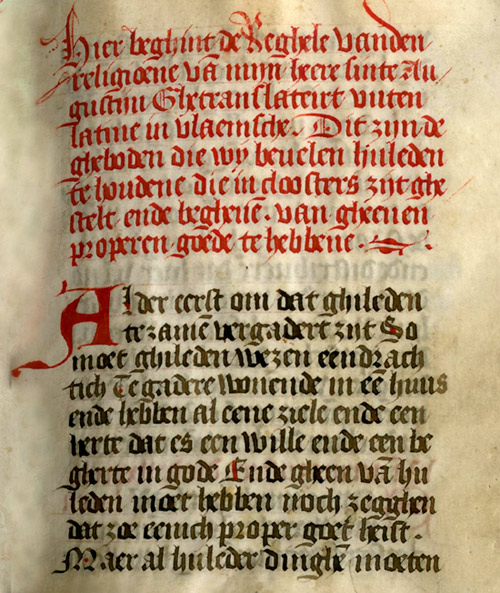 Hier beghint de Reghele vanden
religioene vā mijn heere sinte Au
gustijn Ghetranslateirt vuten
latine in vlaemsche. Dit zijn de
gheboden die wij beuelen huleden
te houdene die in cloosters zijt ghe
stelt ende begheuē. van gheenen
properen goede te hebbene.
Alder eerst om dat ghileden
te zamē vergadert zijt So
moet ghileden wezen eendrach
tich Te gadere wonende in eē huus
ende hebben al eene ziele ende een
herte dat es een wille ende een be
gherte in gode Ende gheen vā hu
leden moet hebben noch zegghen
dat zoe eenich proper goet heift.
Maer al huleder dinghē moeten